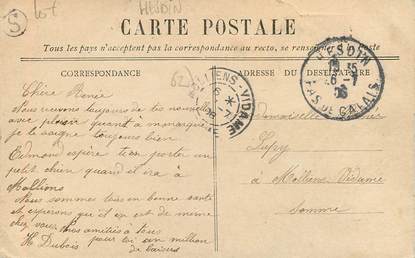 lot HESDIN
S
CARTE POSTALE
Tous les pays n'acceptent pas la correspondance au recto, se renseigner à la
CORRESPONDANCE
ADRESSE DU DESTINATAIRE
HESDIN
6-7
PAS DE CALAIS
LIENS-VIDAME
62
Chère Renée
Nous recevons toujours de tes nouvelles
avec plaisir quant à
je la soigne toujours bien
Edmond espère t'en porter un
petit chien quand il ira à
Molliens
Nous sommes tous en bonne santé
et espérons qu'il en est de même
chez vous amitiés à tous
H Dubois pour toi un million
de baisers
Lupy
à Molliens Vidame
Somme